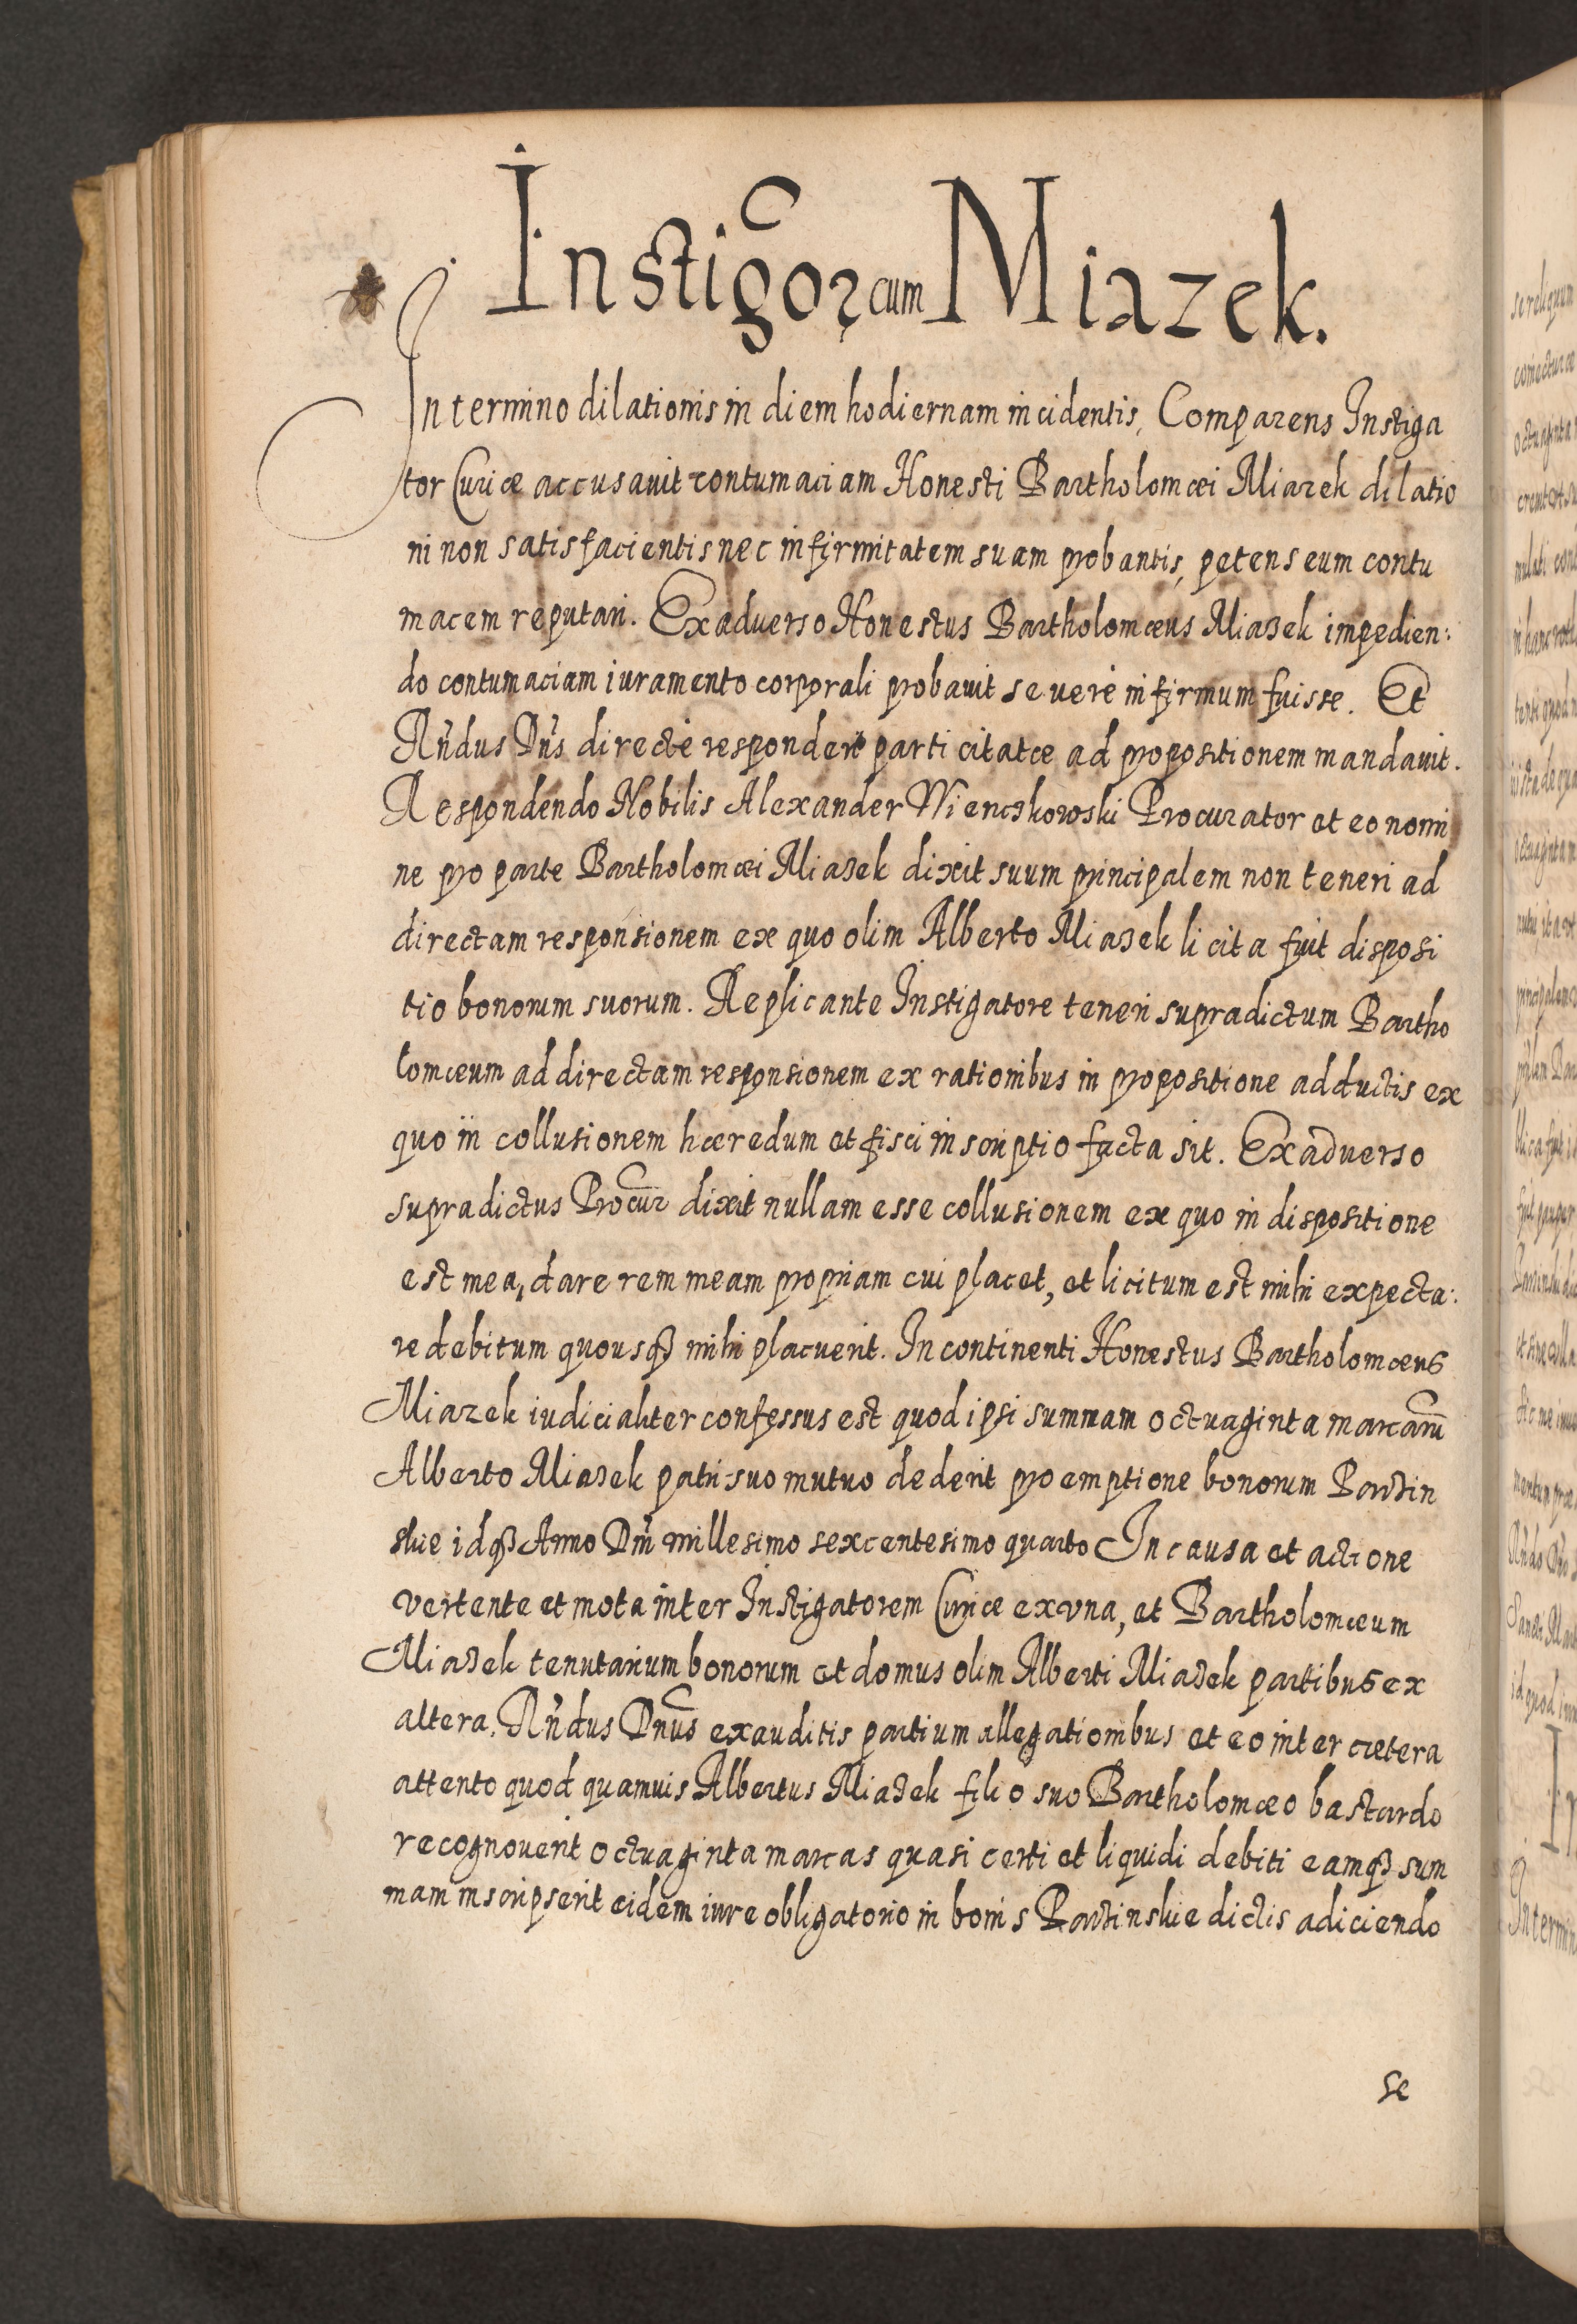 Instigor cum Miazek.
In termino dilationis in diem hodiernam incidentis, Comparens Instiga
tor Curiæ accusauit contumaciam Honesti Bartholomæi Miazek dilatio
ni non satisfacientis nec infirmitatem suam probantis, petens eum contu
macem reputari. Ex aduerso Honestus Bartholomæus Miazek impedien:
do contumaciam iuramento corporali probauit se verè infirmum fuisse. Et
Rndus Dns directè respondere parti citatæ ad propositionem mandauit.
Respondendo Nobilis Alexander Wienczkowski Procurator et eo nomi
ne pro parte Bartholomæi Miazek dixit suum principalem non teneri ad
directam responsionem ex quo olim Alberto Miazek licita fuit disposi
tio bonorum suorum. Replicante Instigatore teneri supradictum Bartho
lomæum ad directam responsionem ex rationibus in propositione adductis ex
quo in collusionem hæredum et fisci inscriptio facta sit. Ex aduerso
supradictus Procur dixit nullam esse collusionem ex quo in dispositione
est mea, dare rem meam propriam cui placet, et licitum est mihi expecta:
re debitum quousq3 mihi placuerit. In continenti Honestus Bartholomæus
Miazek iudicialiter confessus est quod ipsi summam octuaginta marcarū
Alberto Miazek patri suo mutuo dederit pro emptione bonorum Bardzin
skie idq3 Anno Dni millesimo sexcentesimo quarto In causa et actione
vertente et mota inter Instigatorem Curiæ ex vna, et Bartholomæum
Miazek tenutarium bonorum et domus olim Alberti Miazek partibus ex
altera, Rndus Dnus exauditis partium allegationibus et eo inter cætera
attento quod quamuis Albertus Miazek filio suo Bartholomæo bastardo
recognouerit octuaginta marcas quasi certi et liquidi debiti eamq3 sum
mam inscripserit eidem iure obligatorio in bonis Bardzinskie dictis adiciendo
se